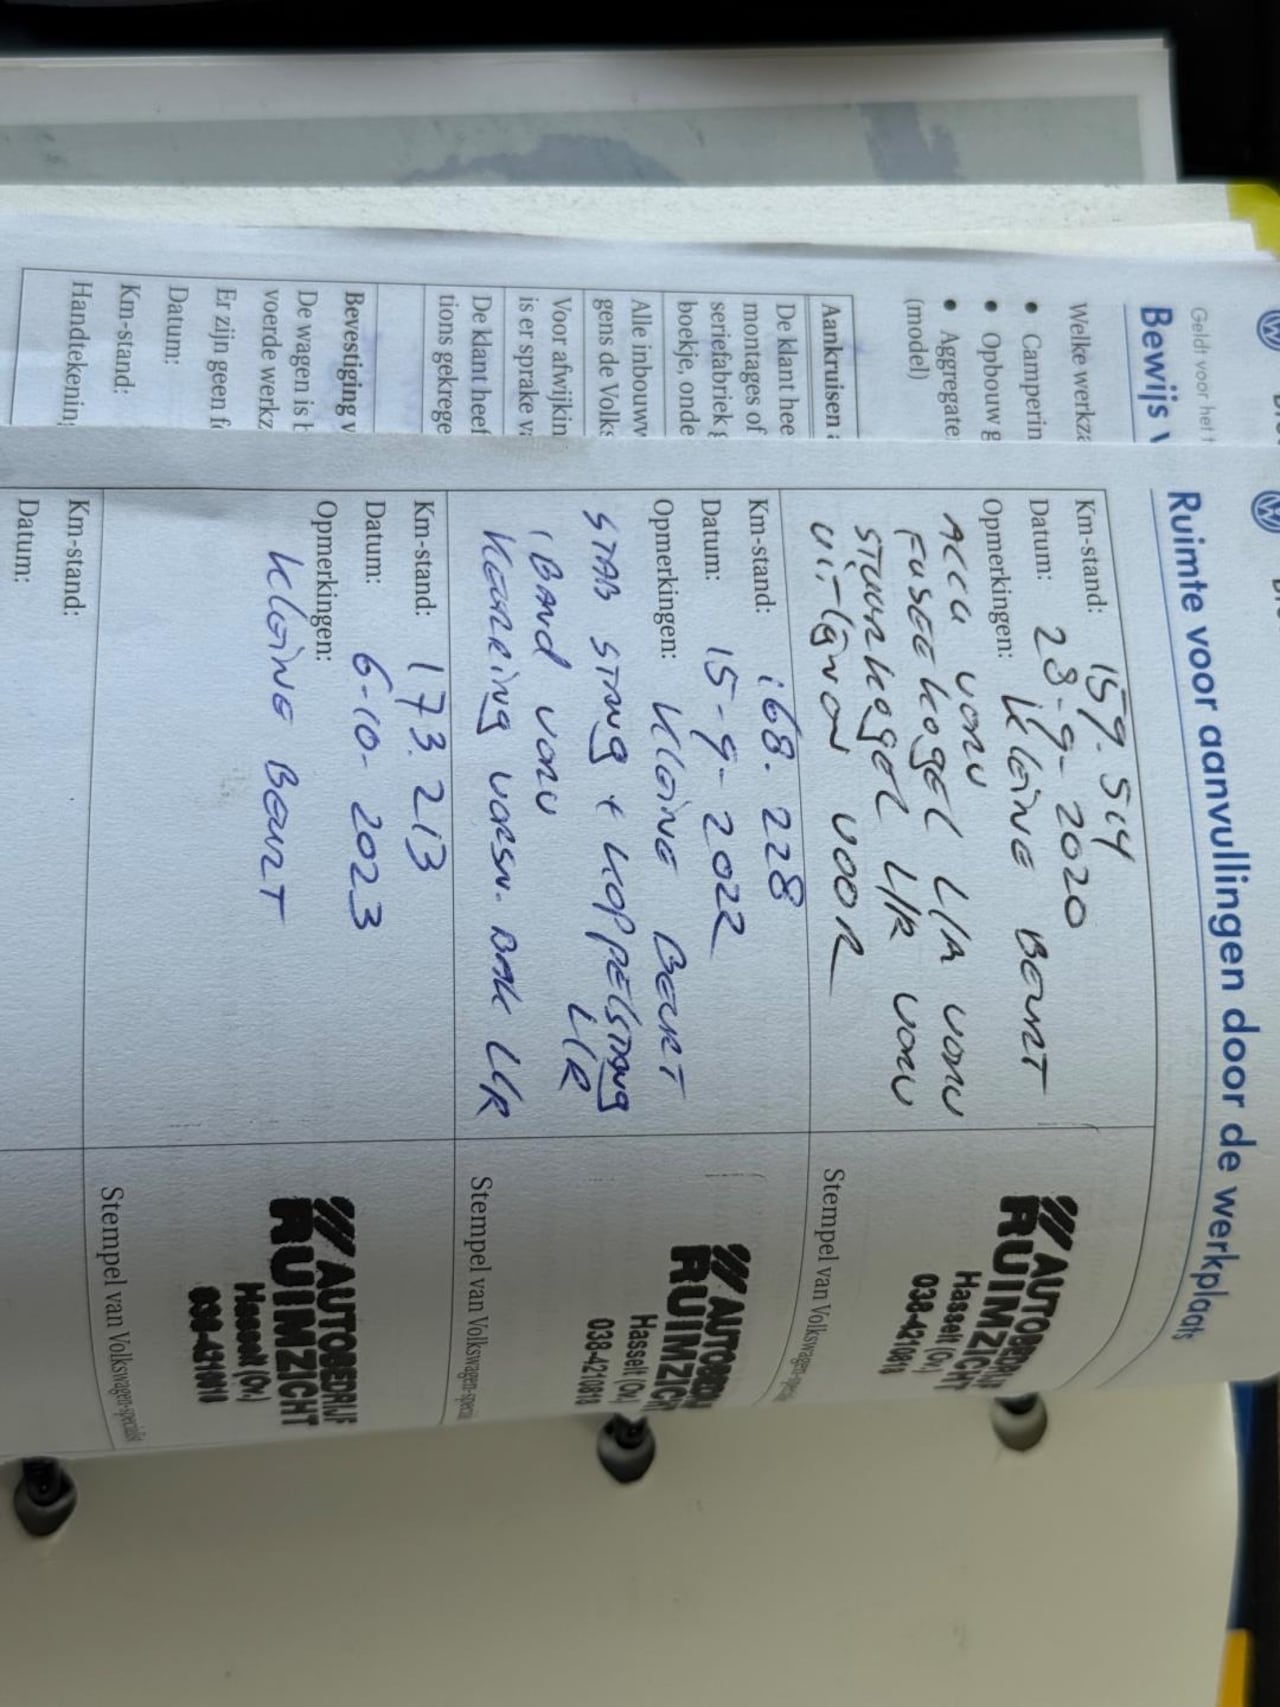 Geldt voor het f
Bewijs v
Welke werkza
• Camperin
• Opbouw g
• Aggregate
(model)
Aankruisen a
De klant hee
montages of
seriefabriek g
boekje, onde
Alle inbouww
gens de Volks
Voor afwijkin
is er sprake va
De klant heef
tions gekrege
Bevestiging v
De wagen is b
voerde werkz
Er zijn geen fo
Datum:
Km-stand:
Handtekening
Ruimte voor aanvullingen door de werkplaats
Km-stand: 159.514
Datum: 28-9-2020
Opmerkingen: Kleine Beurt
Accu vorw
Fuseekogel L/R vorw
Stuurkogel L/R vorw
Uitlijnen voor
AUTOBEDRIJF
RUIMZICHT
Hasselt (Ov.)
038-4210818
Stempel van Volkswagen-speci
Km-stand: 168.228
Datum: 15-9-2022
Opmerkingen: Kleine Beurt
Stab stang + Koppelstang
L/R
1 Band vorw
Keerring versn. Bak L/R
AUTOBEDRIJ
RUIMZICH
Hasselt (Ov.)
038-4210818
Stempel van Volkswagen-specia
Km-stand: 173.213
Datum: 6-10-2023
Opmerkingen:
Kleine Beurt
AUTOBEDRIJF
RUIMZICHT
Hasselt (Ov.)
038-4210818
Stempel van Volkswagen-specialist
Km-stand:
Datum: